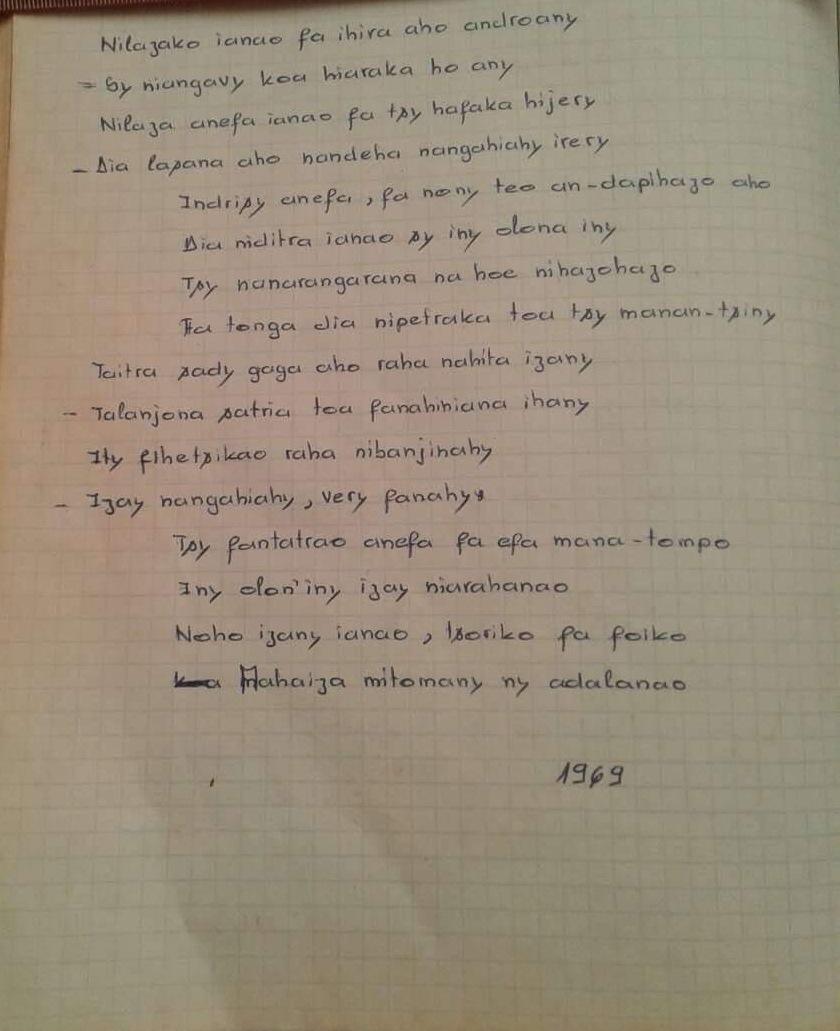 Nilazako ianao fa ihira aho androany
= Sy niangavy koa hiaraka ho any
Nilaza anefa ianao fa tsy hafaka hijery
- Dia lasana aho nandeha nangahiahy irery
Indrisy anefa, fa nony teo an-dapihazo aho
Dia niditra ianao sy iny olona iny
Tsy nanarangarana na hoe nihazohazo
Fa tonga dia nipetraka toa tsy manan-tsiny
Taitra sady gaga aho raha nahita izany
- Talanjona satria toa fanahiniana ihany
Ity fihetsikao raha nibanjinahy
- Izay nangahiahy, very fanahy
Tsy fantatrao anefa fa efa mana-tompo
Iny olon'iny izay niarahanao
Noho izany ianao, tsoriko fa foiko
Mahaiza mitomany ny adalanao
1969